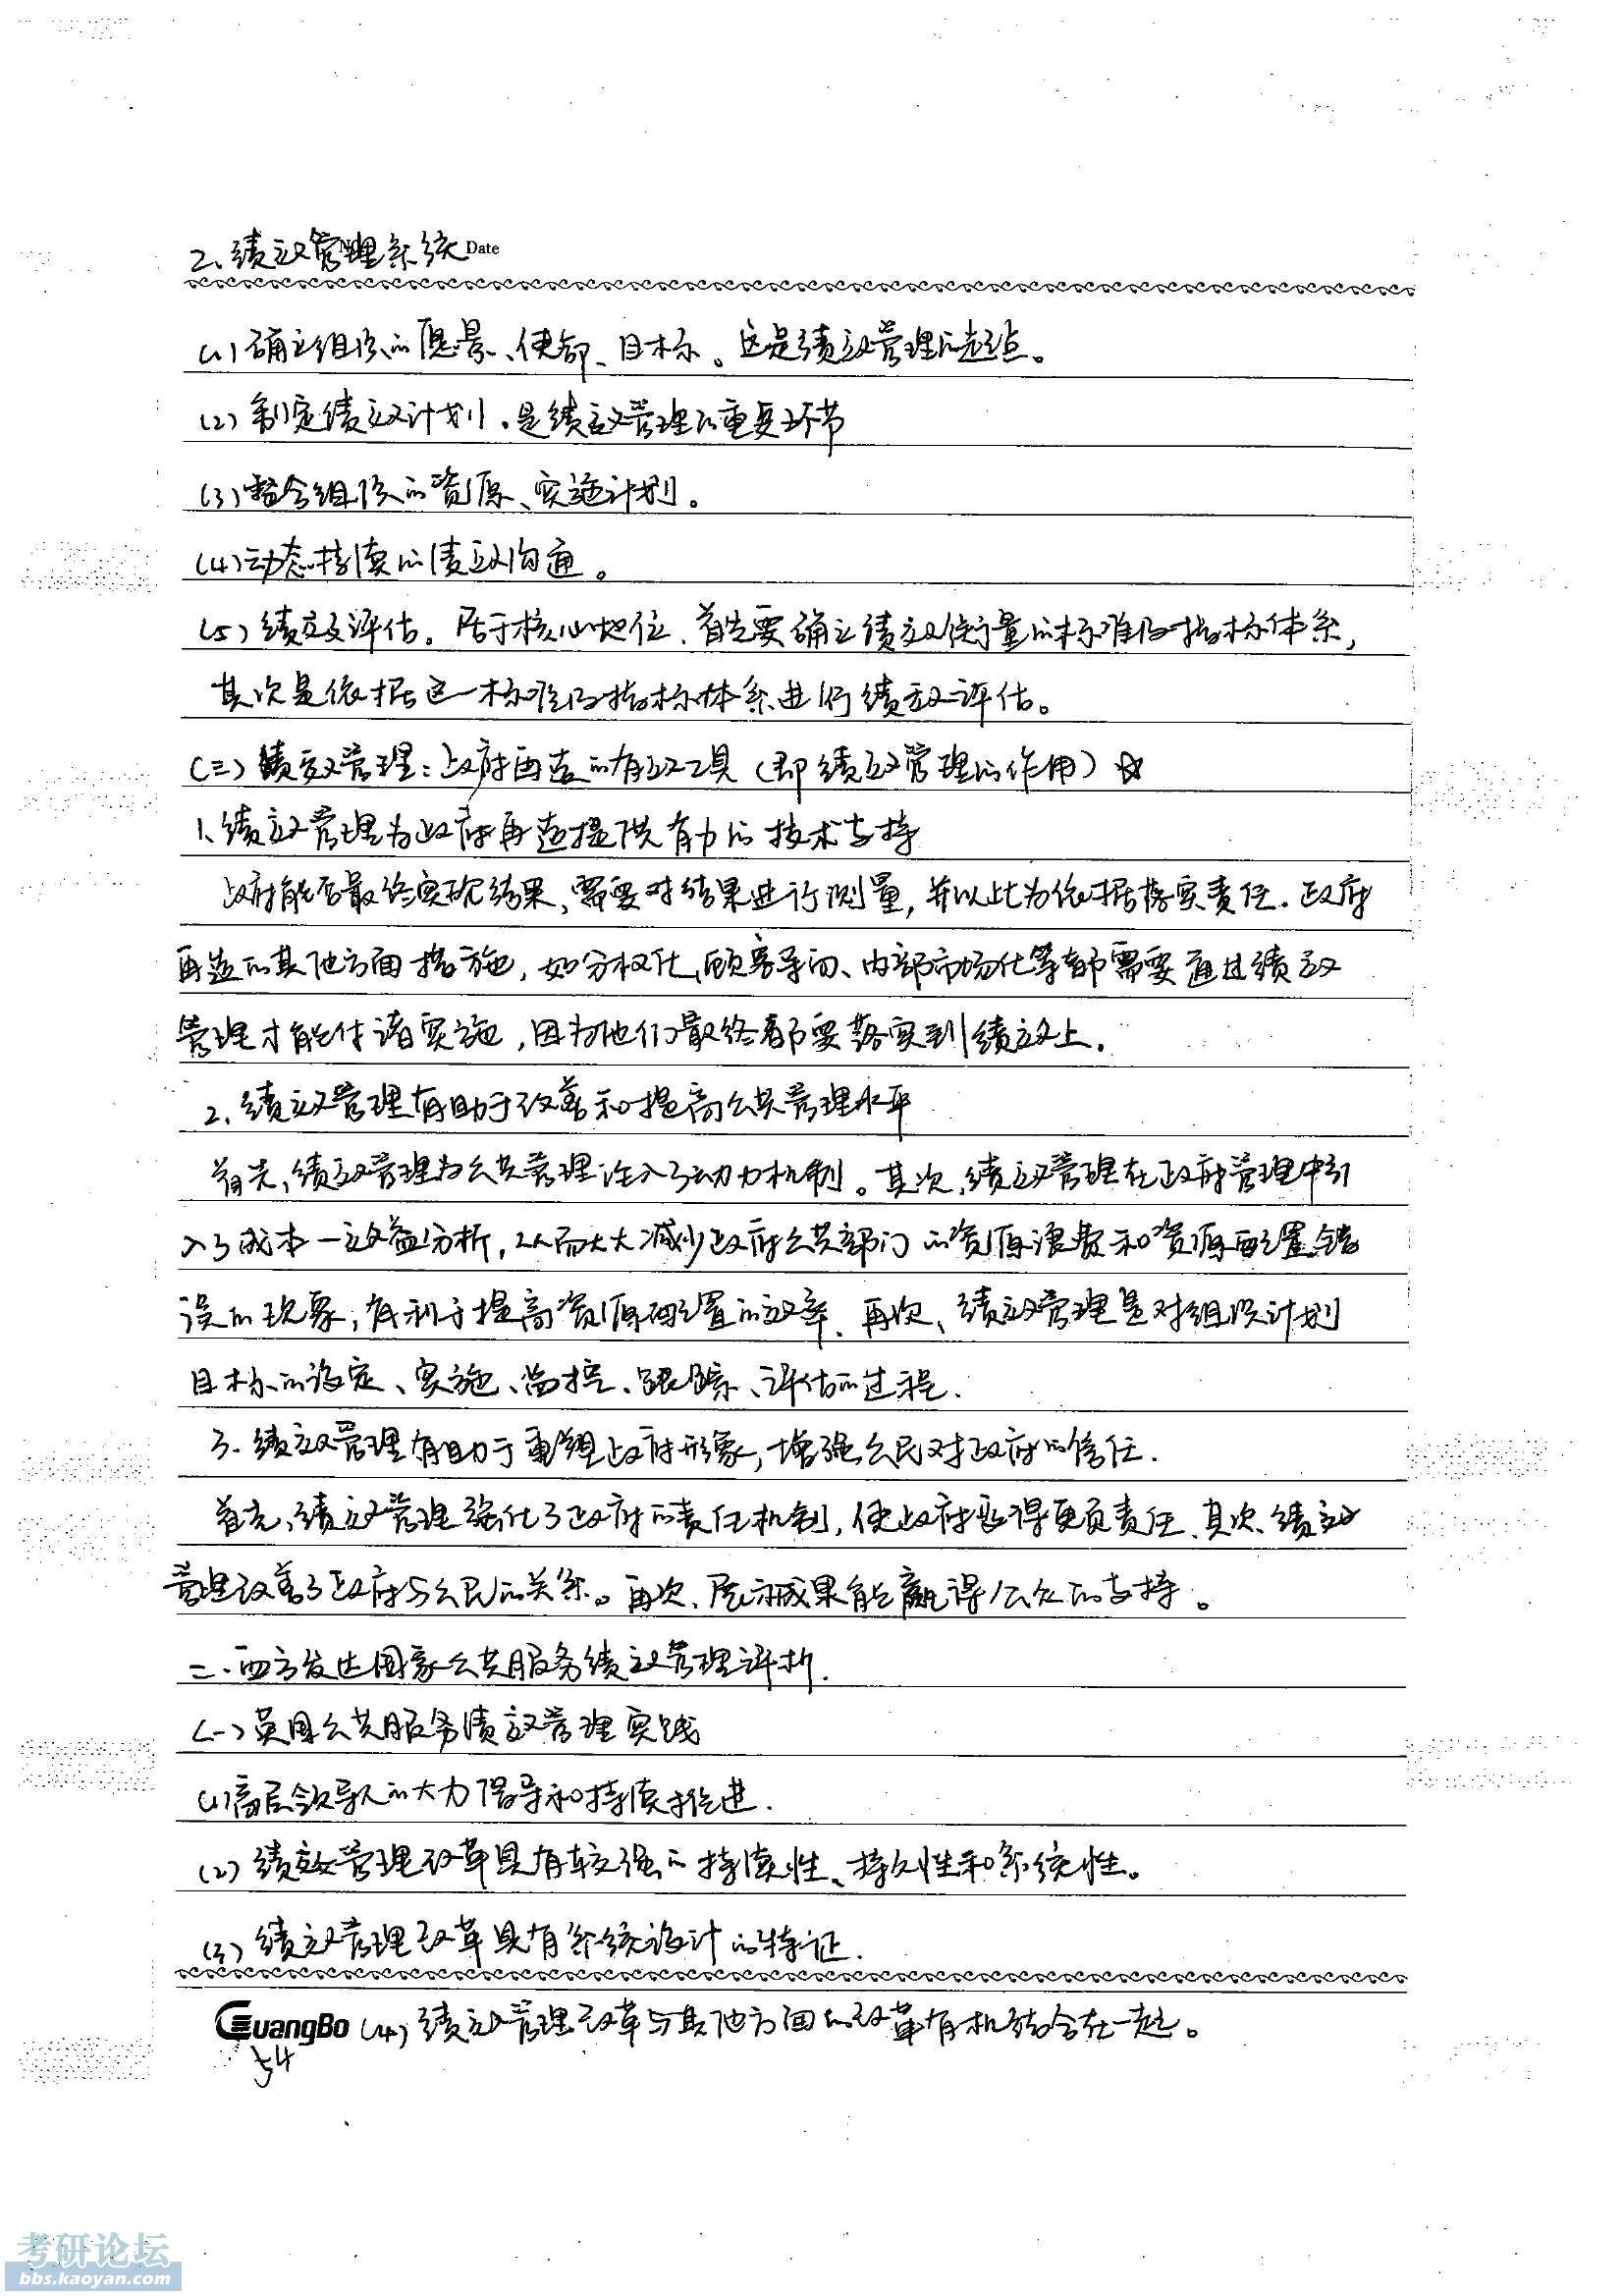 2、绩效管理系统 Date
(1)确立组织的愿景、使命、目标。这是绩效管理的起点。
(2)制定绩效计划。是绩效管理的重要环节
(3)整合组织的资源、实施计划。
(4)动态持续的绩效沟通。
(5)绩效评估。居于核心地位、首先要确立绩效衡量的标准及指标体系,
其次是依据这一标准及指标体系进行绩效评估。
(三)绩效管理:政府再造的有效工具(即绩效管理的作用)☆
1、绩效管理为政府再造提供有力的技术支持
政府能否最终实现结果、需要对结果进行测量,并以此为依据落实责任.政府
再造的其他方面措施,如分权化、顾客导向、内部市场化等都需要通过绩效
管理才能付诸实施,因为他们最终都要落实到绩效上.
2、绩效管理有助于改善和提高公共管理水平
首先、绩效管理为公共管理注入了动力机制。其次、绩效管理在政府管理中引
入了成本一效益分析,从而大大减少政府公共部门的资源浪费和资源配置错
误的现象,有利于提高资源配置的效率、再次、绩效管理是对组织计划
目标的设定、实施、监控、跟踪、评估的过程.
3、绩效管理有助于重塑政府形象,增强公民对政府的信任.
首先、绩效管理强化了政府的责任机制,使政府变得更负责任、其次、绩效
管理改善了政府与公民的关系。再次、展示成果能赢得公众的支持。
二、西方发达国家公共服务绩效管理评析.
(一)英国公共服务绩效管理实践
(1)高层领导人的大力倡导和持续推进.
(2)绩效管理改革具有较强的持续性、持久性和系统性。
(3)绩效管理改革具有系统设计的特征.
GuangBo (4)绩效管理改革与其他方面的改革有机结合在一起。
54
考研论坛
bbs.kaoyan.com